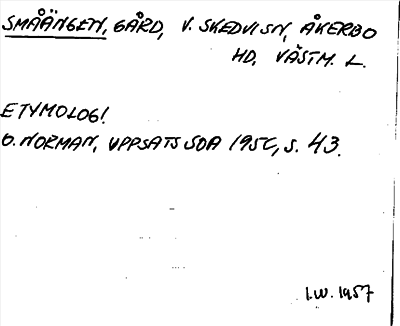 SMÅÄNGEN, GÅRD, V. SKEDVI SN, ÅKERBO
HD, VÄSTM. L.
ETYMOLOGI
O. NORMAN, UPPSATS SOA 1950, S. 43.
I.W. 1957